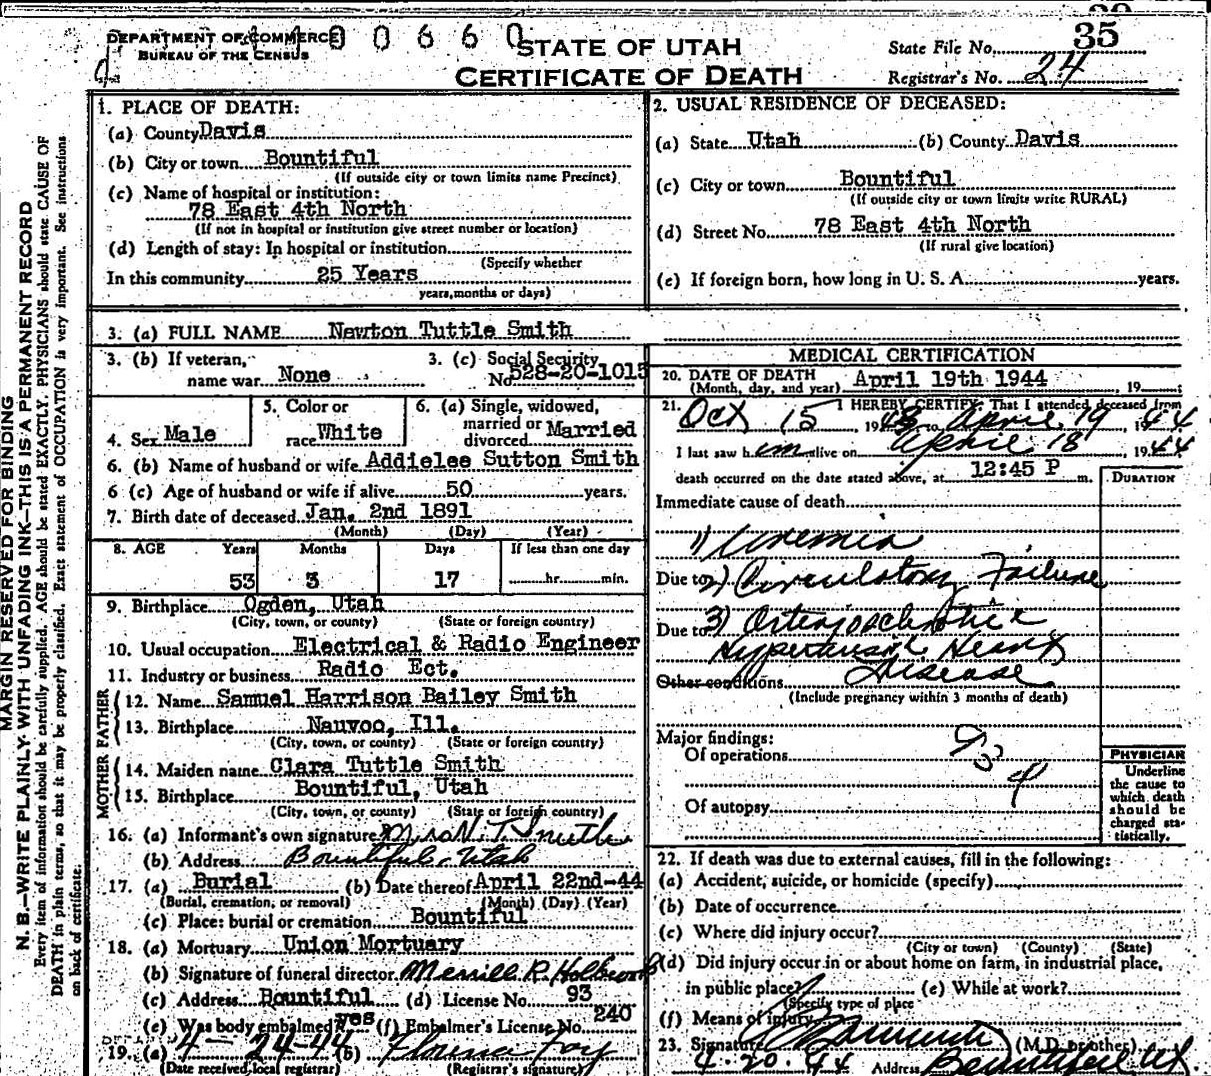 DEPARTMENT OF COMMERCE
BUREAU OF THE CENSUS
0 0 6 6 0
STATE OF UTAH
CERTIFICATE OF DEATH
State File No. 35
Registrar's No. 24
MARGIN RESERVED FOR BINDING
N. B.—WRITE PLAINLY WITH UNFADING INK—THIS IS A PERMANENT RECORD
Every item of information should be carefully supplied. AGE should be stated EXACTLY. PHYSICIANS should state CAUSE OF
DEATH in plain terms, so that it may be properly classified. Exact statement of OCCUPATION is very important. See instructions
on back of certificate.
1. PLACE OF DEATH:
(a) County Davis
(b) City or town Bountiful
(If outside city or town limits name Precinct)
(c) Name of hospital or institution:
78 East 4th North
(If not in hospital or institution give street number or location)
(d) Length of stay: In hospital or institution
(Specify whether
In this community 25 Years
years, months or days)
2. USUAL RESIDENCE OF DECEASED:
(a) State Utah (b) County Davis
(c) City or town Bountiful
(If outside city or town limits write RURAL)
(d) Street No. 78 East 4th North
(If rural give location)
(e) If foreign born, how long in U. S. A. years.
3. (a) FULL NAME Newton Tuttle Smith
3. (b) If veteran, name war None
3. (c) Social Security No. 528-20-1015
4. Sex Male
5. Color or race White
6. (a) Single, widowed, married or divorced Married
6. (b) Name of husband or wife Addielee Sutton Smith
6 (c) Age of husband or wife if alive 50 years.
7. Birth date of deceased Jan. 2nd 1891
(Month) (Day) (Year)
8. AGE Years Months Days If less than one day
53 3 17 hr. min.
9. Birthplace Ogden, Utah
(City, town, or county) (State or foreign country)
10. Usual occupation Electrical & Radio Engineer
11. Industry or business Radio Ect.
FATHER
12. Name Samuel Harrison Bailey Smith
13. Birthplace Nauvoo, Ill.
(City, town, or county) (State or foreign country)
MOTHER
14. Maiden name Clara Tuttle Smith
15. Birthplace Bountiful, Utah
(City, town, or county) (State or foreign country)
16. (a) Informant's own signature Mrs. N. T. Smith
(b) Address Bountiful, Utah
17. (a) Burial (b) Date thereof April 22nd-44
(Burial, cremation, or removal) (Month) (Day) (Year)
(c) Place: burial or cremation Bountiful
18. (a) Mortuary Union Mortuary
(b) Signature of funeral director Merrill R. Holbrook
(c) Address Bountiful (d) License No. 93
(e) Was body embalmed? yes (f) Embalmer's License No. 240
19. (a) 4-24-44 (b) Florence Foy
(Date received local registrar) (Registrar's signature)
MEDICAL CERTIFICATION
20. DATE OF DEATH
(Month, day, and year) April 19th 1944, 19
21. I HEREBY CERTIFY, That I attended deceased from
Oct 15, 1943 to April 19, 1944
I last saw him alive on April 18, 1944
death occurred on the date stated above, at 12:45 P m.
DURATION
Immediate cause of death
1) Uremia
Due to 2) Circulatory Failure
Due to 3) Arteriosclerotic
Hypertensive Heart
Disease
Other conditions
(Include pregnancy within 3 months of death)
Major findings:
Of operations
93
Of autopsy
PHYSICIAN
Underline
the cause to
which death
should be
charged sta-
tistically.
22. If death was due to external causes, fill in the following:
(a) Accident, suicide, or homicide (specify)
(b) Date of occurrence
(c) Where did injury occur?
(City or town) (County) (State)
(d) Did injury occur in or about home on farm, in industrial place,
in public place? (e) While at work?
(Specify type of place
(f) Means of injury
23. Signature (M.D. or other)
4-20-44 Address Bountiful Ut.